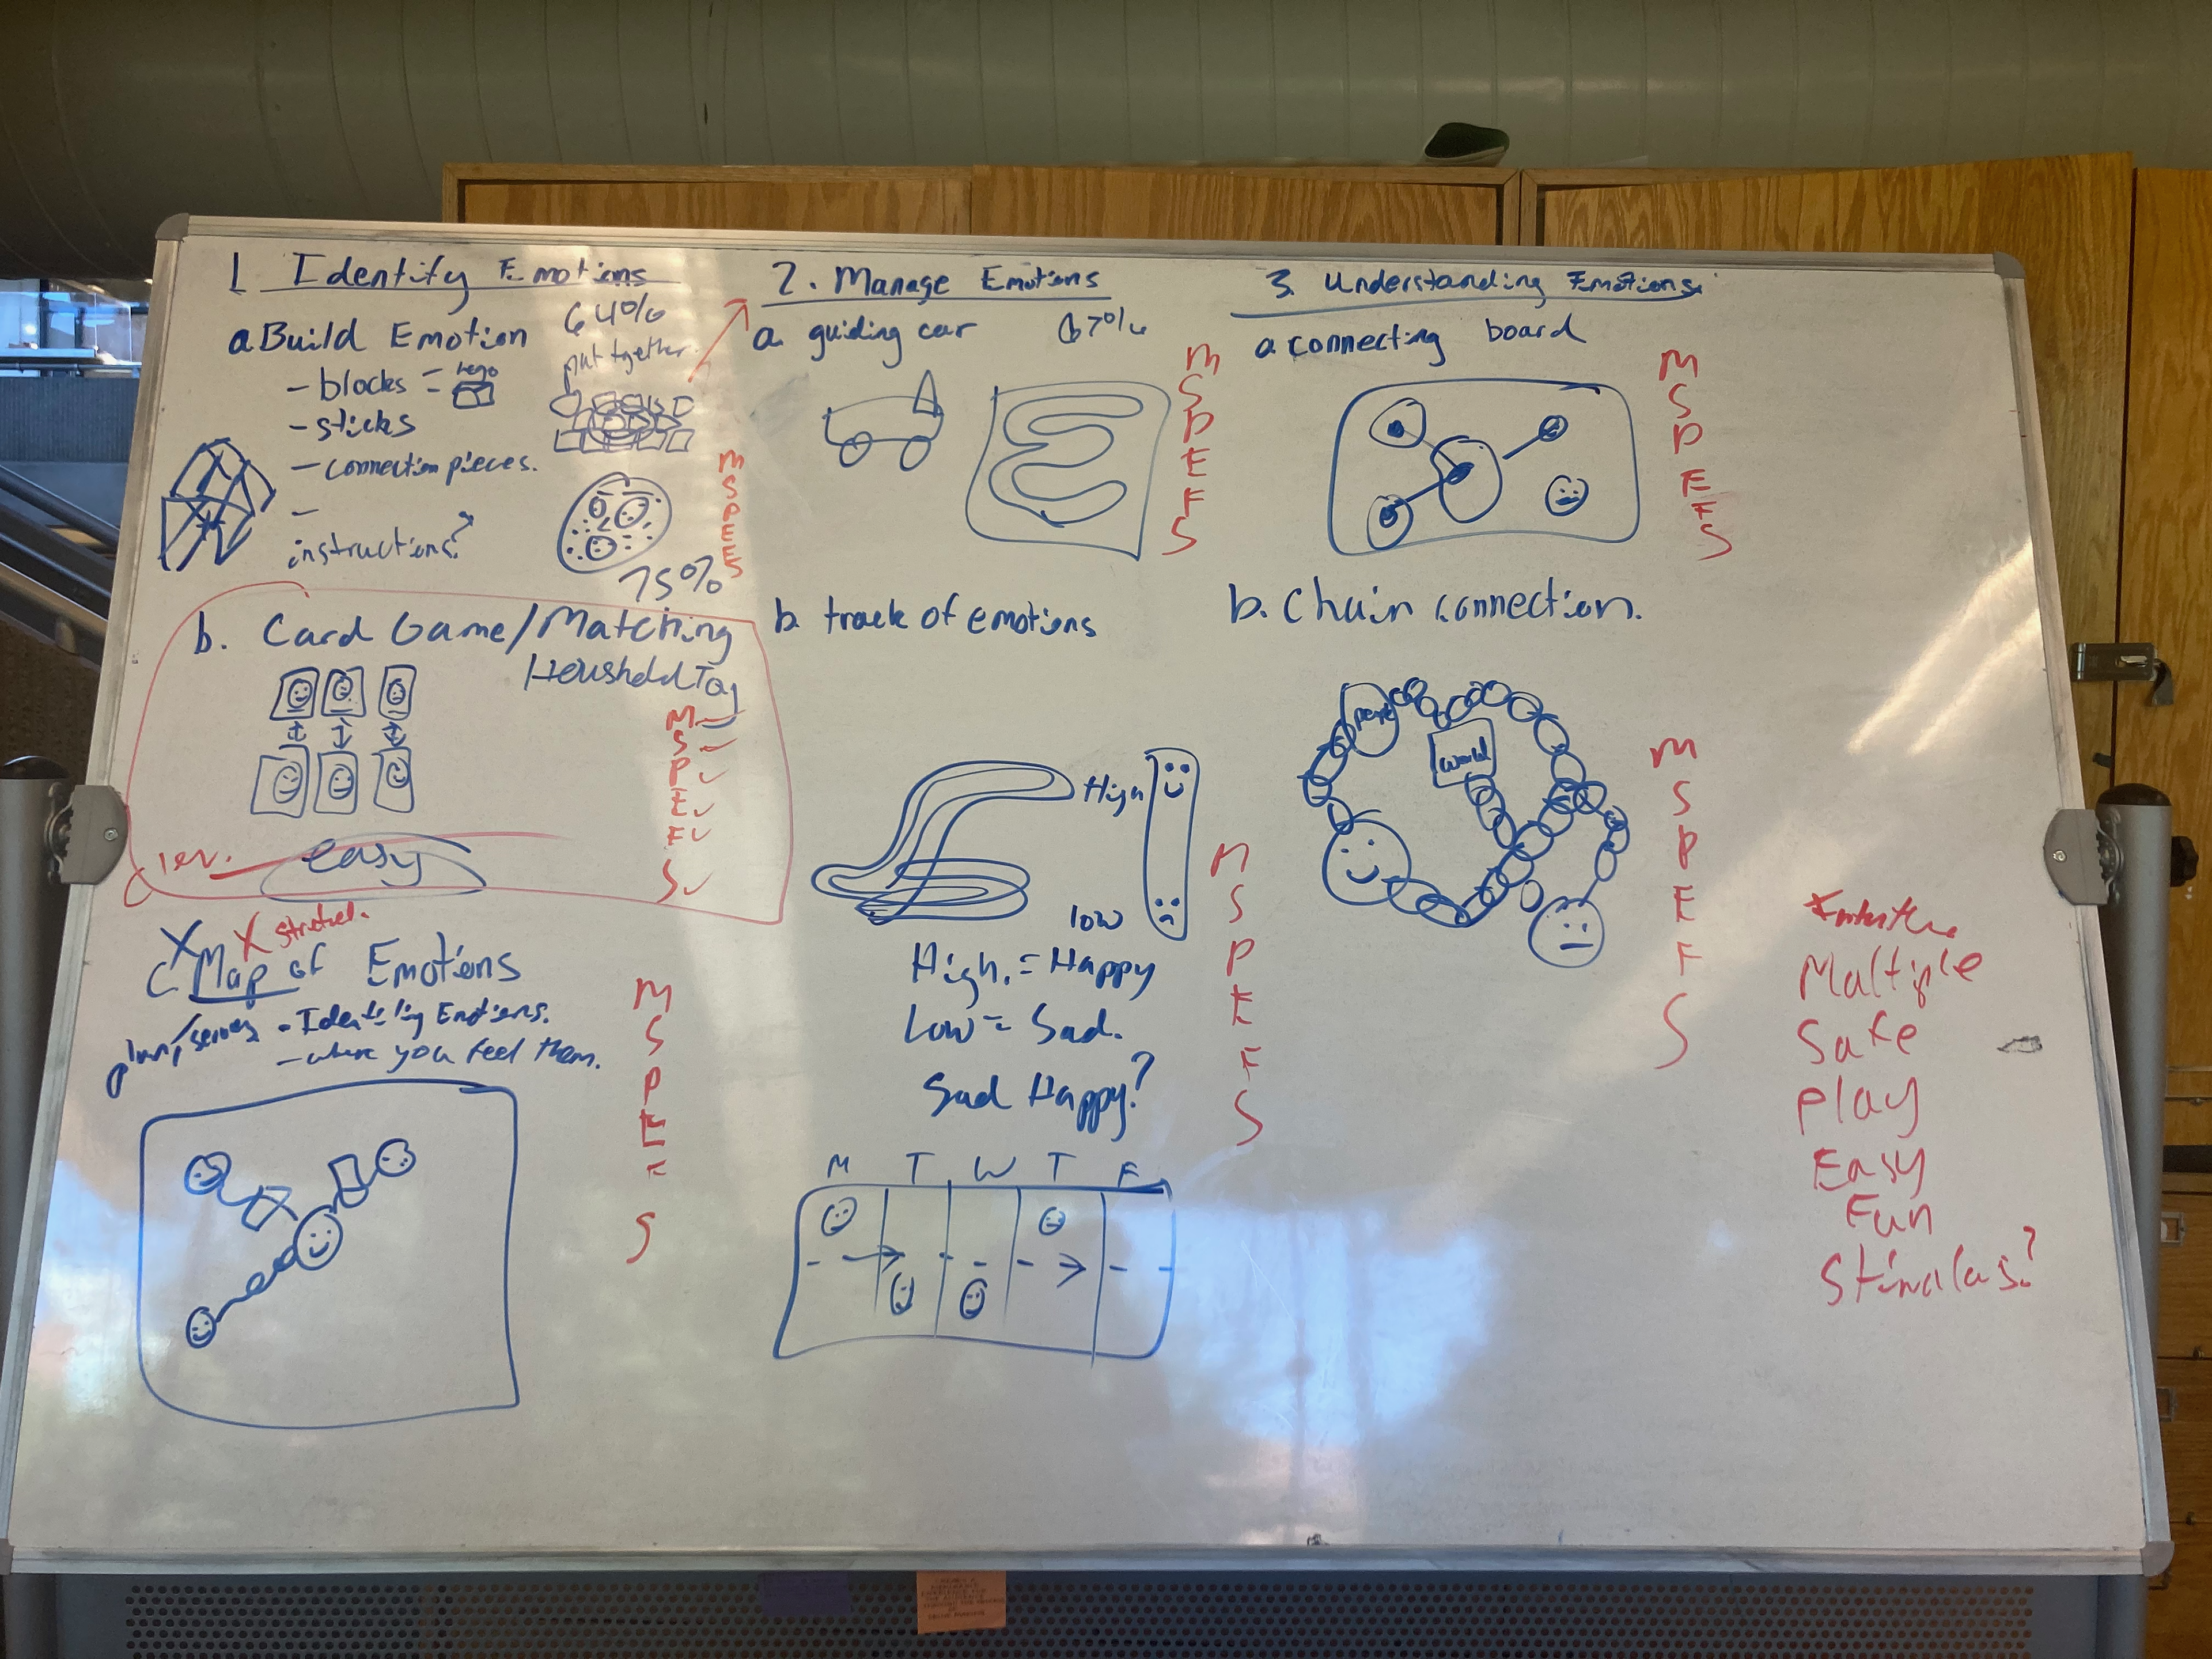 1 Identify Emotions
64%
a Build Emotion
put together
- blocks = lego
- sticks
- connection pieces.
-
instructions?
75%
M
S
P
E
E
S
b. Card Game/Matching
Household Tag
M
S ✓
P ✓
E ✓
F ✓
S ✓
easy
X X
C Map of Emotions
- Identifying Emotions.
- where you feel them.
M
S
P
E
F
S
2. Manage Emotions
a. guiding car 67%
M
S
P
E
F
S
b. track of emotions
High
low
High. = Happy
Low = Sad.
Sad Happy?
M
S
P
E
F
S
M T W T F
3. Understanding Emotions.
a connecting board
M
S
P
E
F
S
b. Chain connection.
world
M
S
P
E
F
S
Multiple
Safe
Play
Easy
Fun